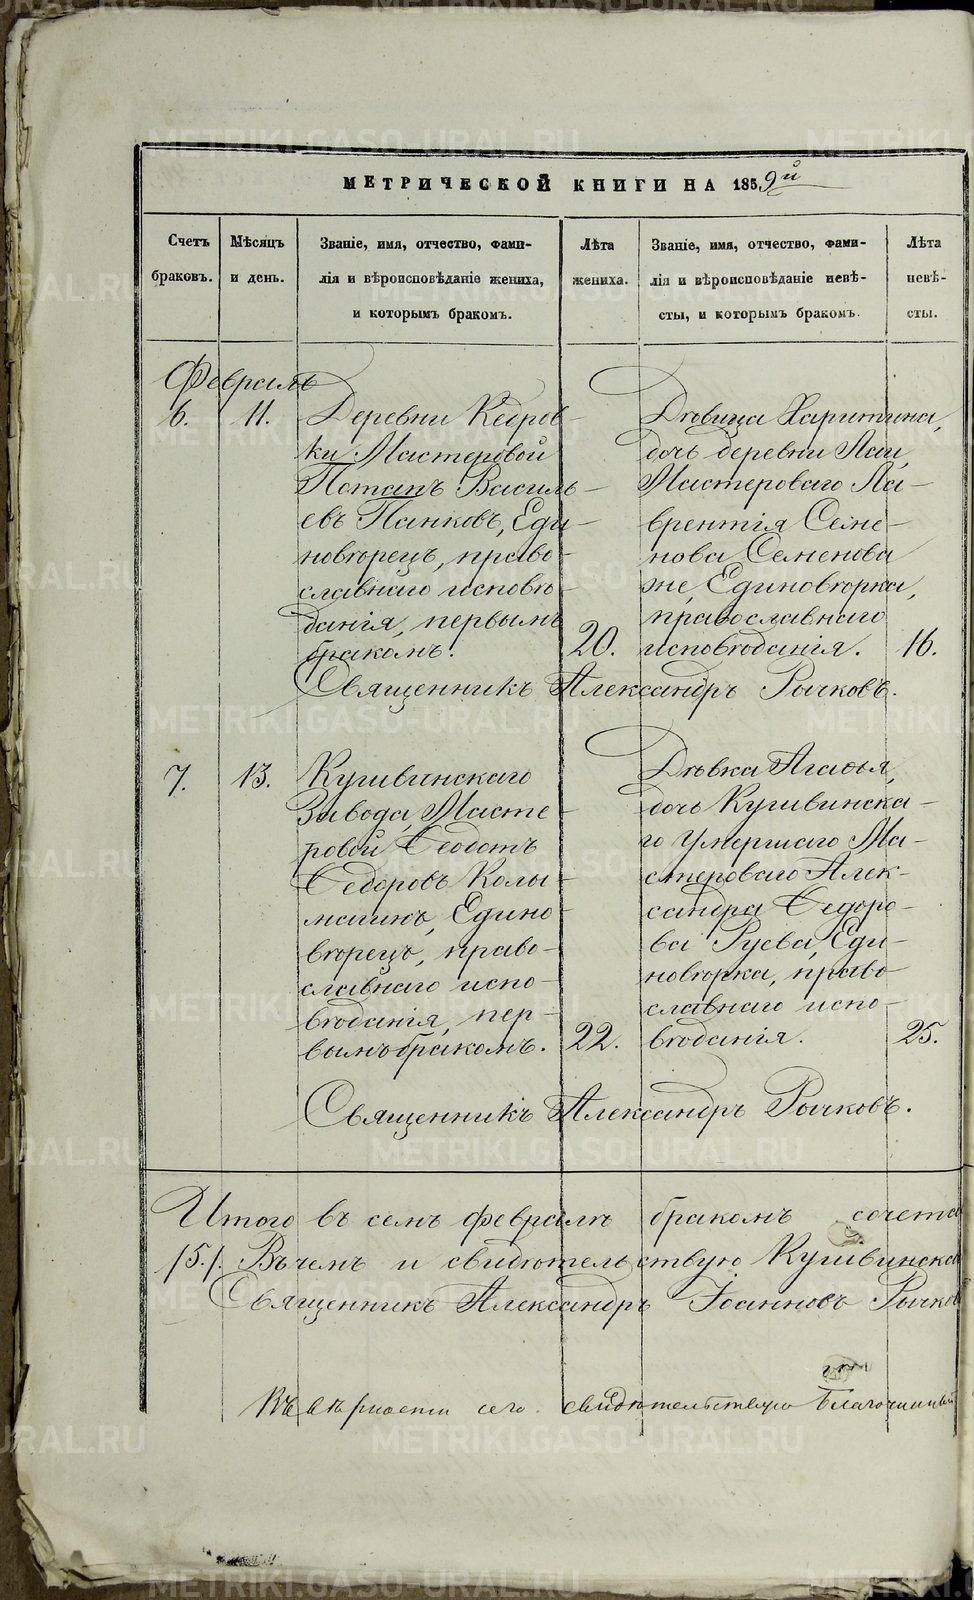 МЕТРИЧЕСКОЙ КНИГИ НА 1859й
Счетъ браковъ.
Мѣсяцъ и день.
Званіе, имя, отчество, фами-
лія и вѣроисповѣданіе жениха,
и которымъ бракомъ.
Лѣта жениха.
Званіе, имя, отчество, фами-
лія и вѣроисповѣданіе невѣ-
сты, и которымъ бракомъ.
Лѣта невѣ-
сты.
Февраль
6. 11.
Деревни Кедров-
ки Мастеровой
Потапъ Василь-
евъ Панковъ, Еди-
новѣрецъ, право-
славнаго исповѣ-
данія, первымъ
бракомъ.
20.
Дѣвица Харитина,
дочь деревни Лаи,
Мастероваго Ла-
врентія Семе-
нова Семенова
же, Единовѣрка,
православнаго
исповѣданія.
16.
Священникъ Александръ Рычковъ.
7. 13.
Кушвинскаго
Завода, Масте-
ровой Ѳеодотъ
Ѳедоровъ Колы-
магинъ, Едино-
вѣрецъ, право-
славнаго испо-
вѣданія, пер-
вымъ бракомъ.
22.
Дѣвка Агаѳья,
дочь Кушвинска-
го умершаго Ма-
стероваго Алек-
сандра Ѳедоро-
ва Гуева, Еди-
новѣрка, право-
славнаго испо-
вѣданія.
25.
Священникъ Александръ Рычковъ.
Итого въ семъ февралѣ бракомъ сочета
/5./. Въ чемъ и свидѣтельствую Кушвинской
Священникъ Александръ Іоанновъ Рычков
Въ вѣрности сего свидѣтельствую Благочинный
METRIKI.GASO-URAL.RU